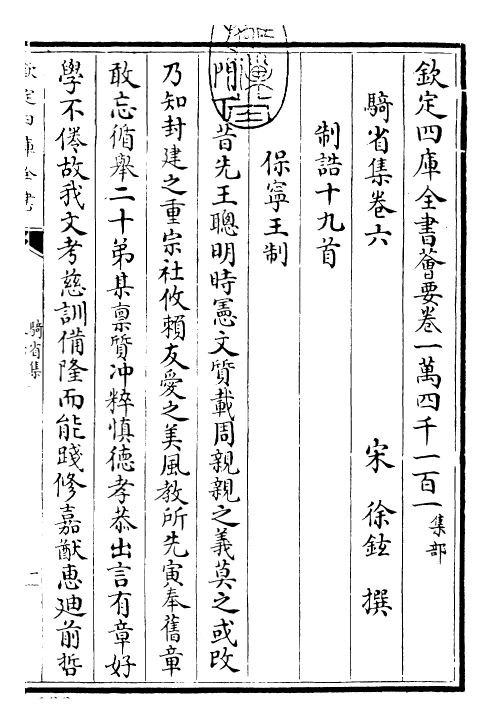 欽定四庫全書薈要卷一萬四千一百一集部
騎省集卷六
宋 徐鉉 撰
制誥十九首
保寧王制
門下昔先王聰明時憲文質載周親親之義莫之或改
乃知封建之重宗社攸賴友愛之美風教所先寅奉舊章
敢忘循舉二十弟某禀質冲粹慎德孝恭出言有章好
學不倦故我文考慈訓備隆而能踐修嘉猷惠廸前哲
欽定四庫全書
騎省集
一